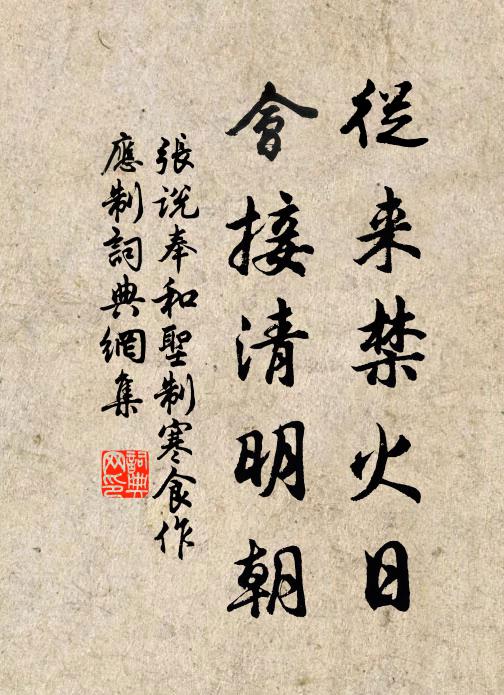 從来禁火日
會接清明朝
張説奉和聖制寒食作
應制詞典網集
詞典
网印